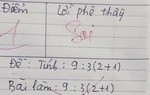 Điểm
Lời phê thầy
1
Sai
Đề: Tính: 9:3(2+1)
Bài làm: 9:3(2+1)